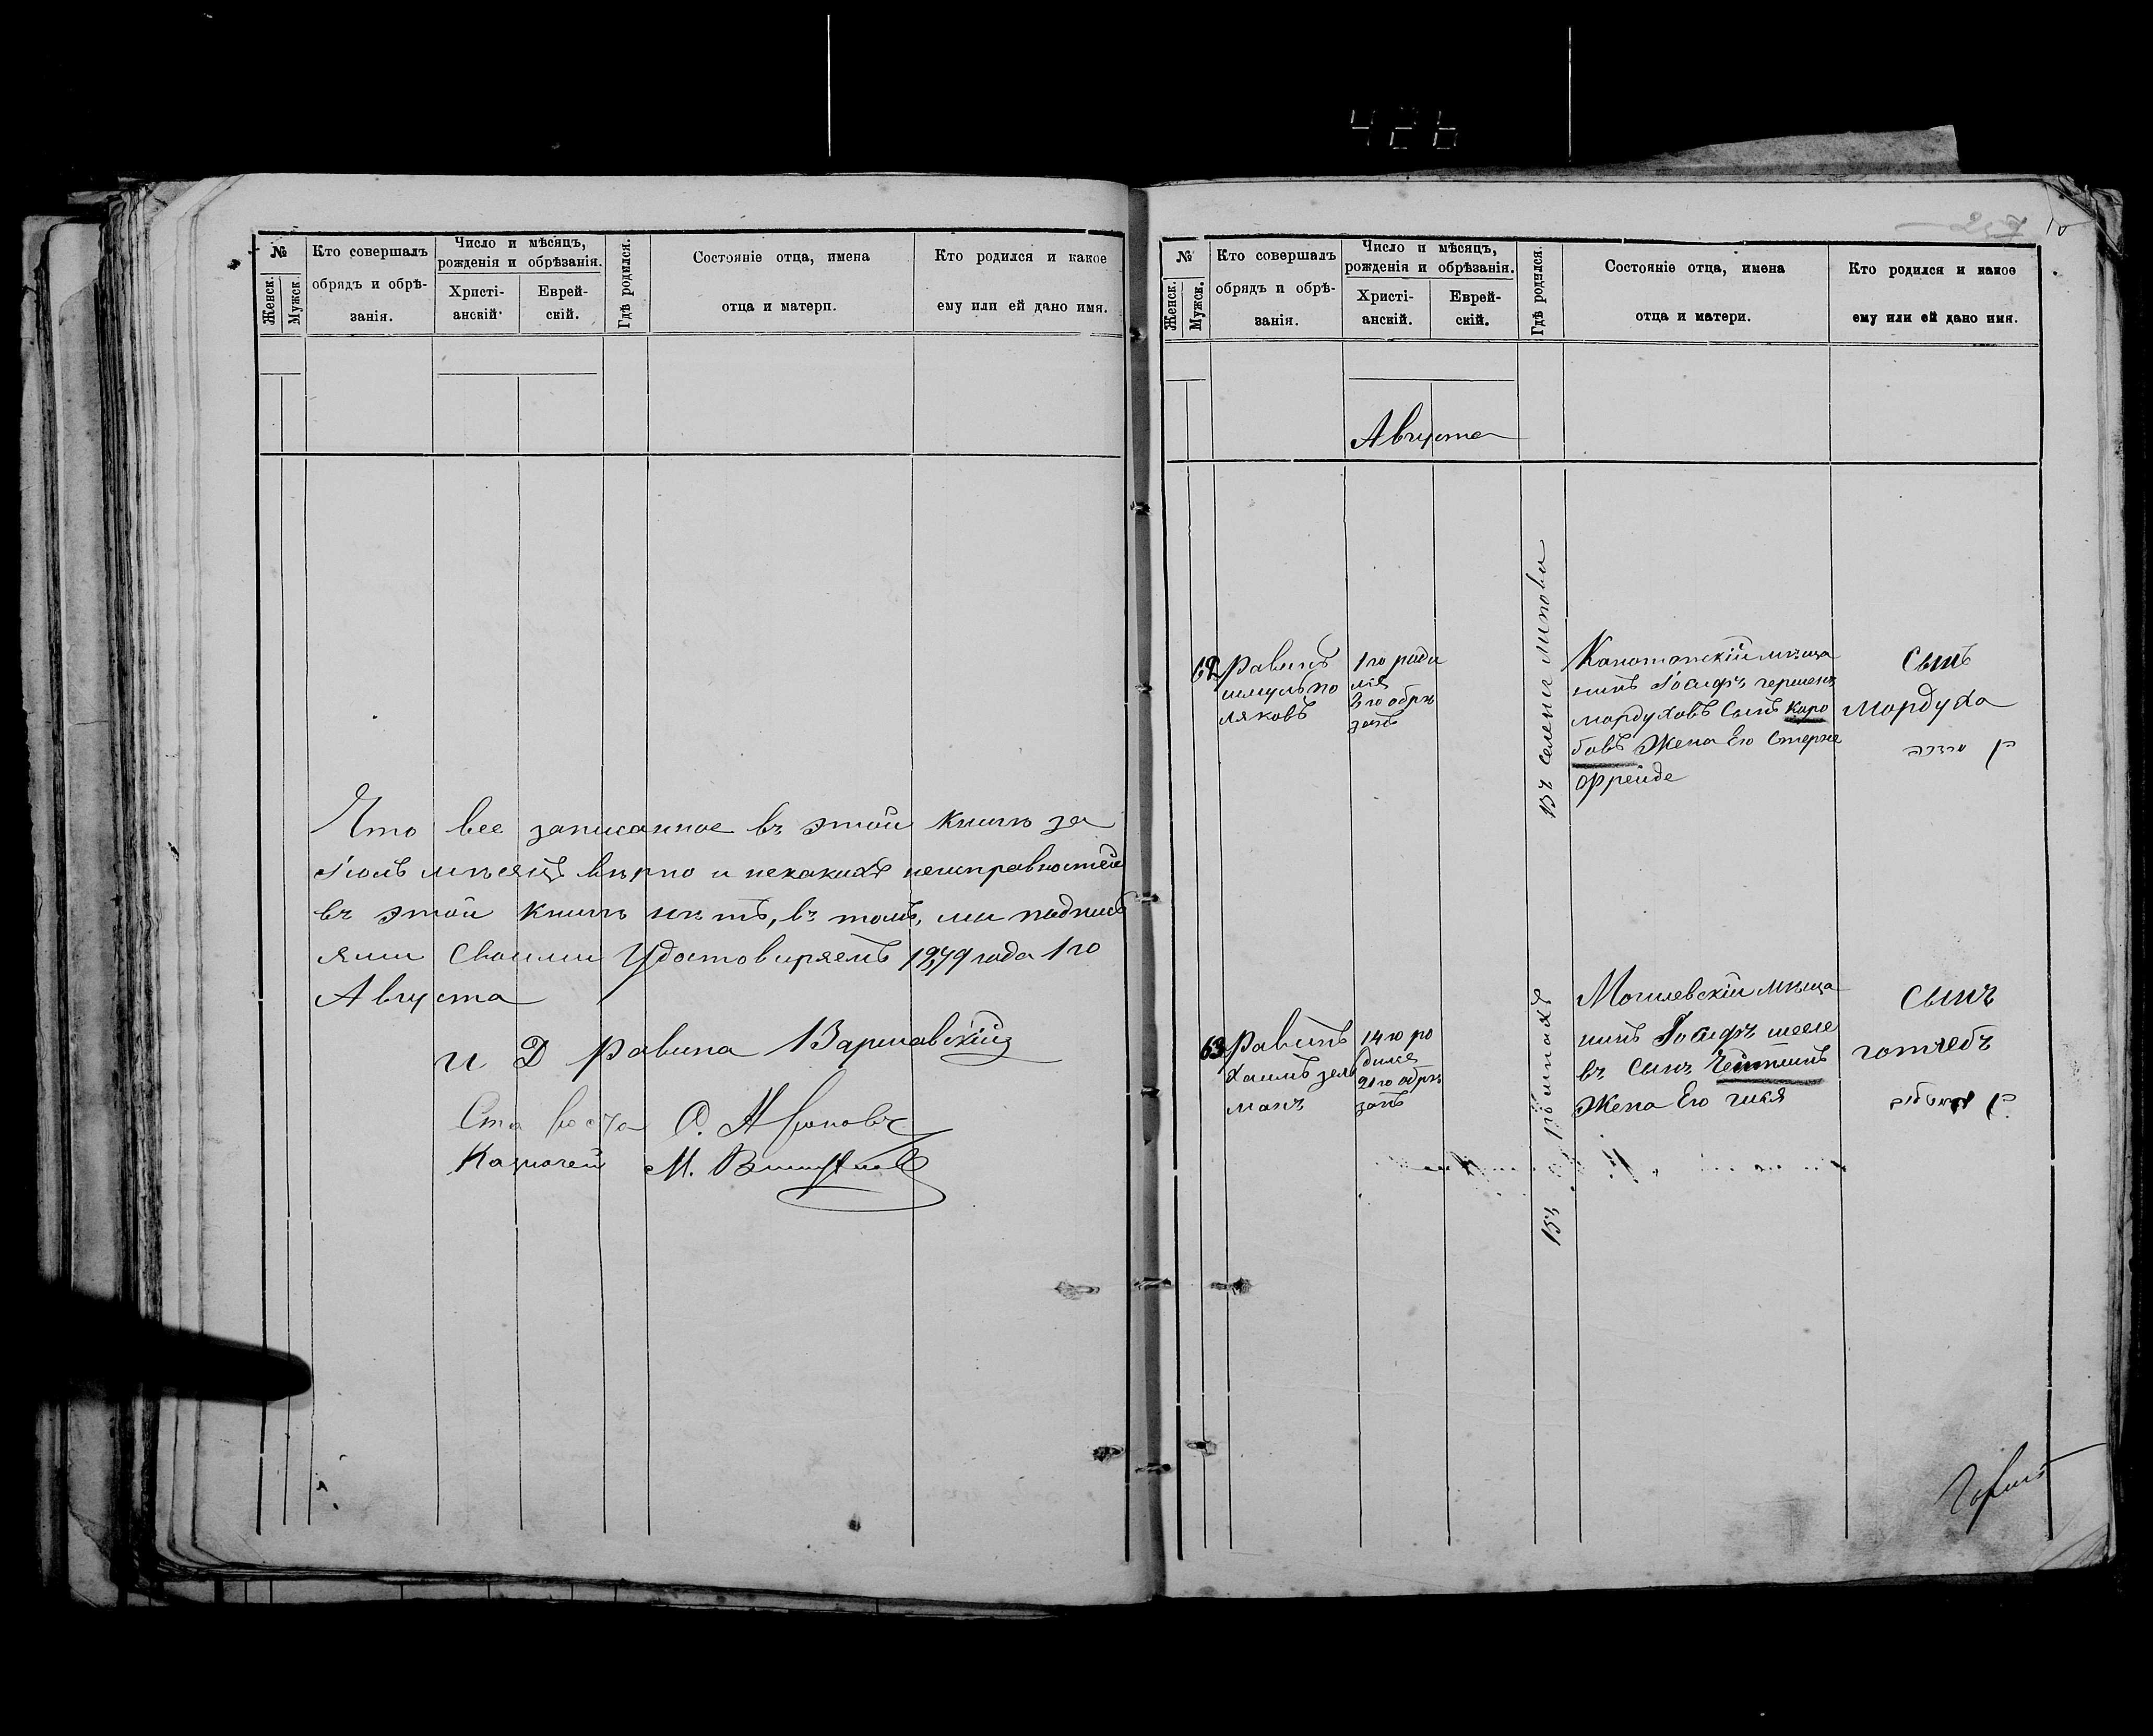 426
№
Женск.
Мужск.
Кто совершалъ
обрядъ и обрѣ-
занія.
Число и мѣсяцъ,
рожденія и обрѣзанія.
Христі-
анскій.
Еврей-
скій.
Гдѣ родился.
Состояніе отца, имена
отца и матери.
Кто родился и какое
ему или ей дано имя.
Что все записанное въ этой книгѣ за
Іюль мѣсяцъ вѣрно и некакихъ неисправностей
въ этой книгѣ нѣтъ, въ томъ, ми подпись
ями своими Удостовиряемъ 1879 года 1го
Августа
и Д Равина Варшавскій
Староста
Казначей М.
№
Женск.
Мужск.
Кто совершалъ
обрядъ и обрѣ-
занія.
Число и мѣсяцъ,
рожденія и обрѣзанія.
Христі-
анскій.
Еврей-
скій.
Гдѣ родился.
Состояніе отца, имена
отца и матери.
Кто родился и какое
ему или ей дано имя.
Августа
62
Равинъ
шмуль по
ляковъ
1го роди
лся
8го обрѣ
занъ
Въ селеніи Липова
Канотопскій мѣща
нинъ Іосифъ гершенъ
мордуховъ Сынъ Каро
бовъ Жена Его Стерне
фрейде
Сынъ
Мордуха
63
Равинъ
Хаимъ зель
манъ
14го ро
дился
21го обрѣ
занъ
Въ
Могилевскій мѣща
нинъ Іосифъ шееле
въ Сынъ Чейтлинъ
Жена Его гися
Сынъ
готлебъ